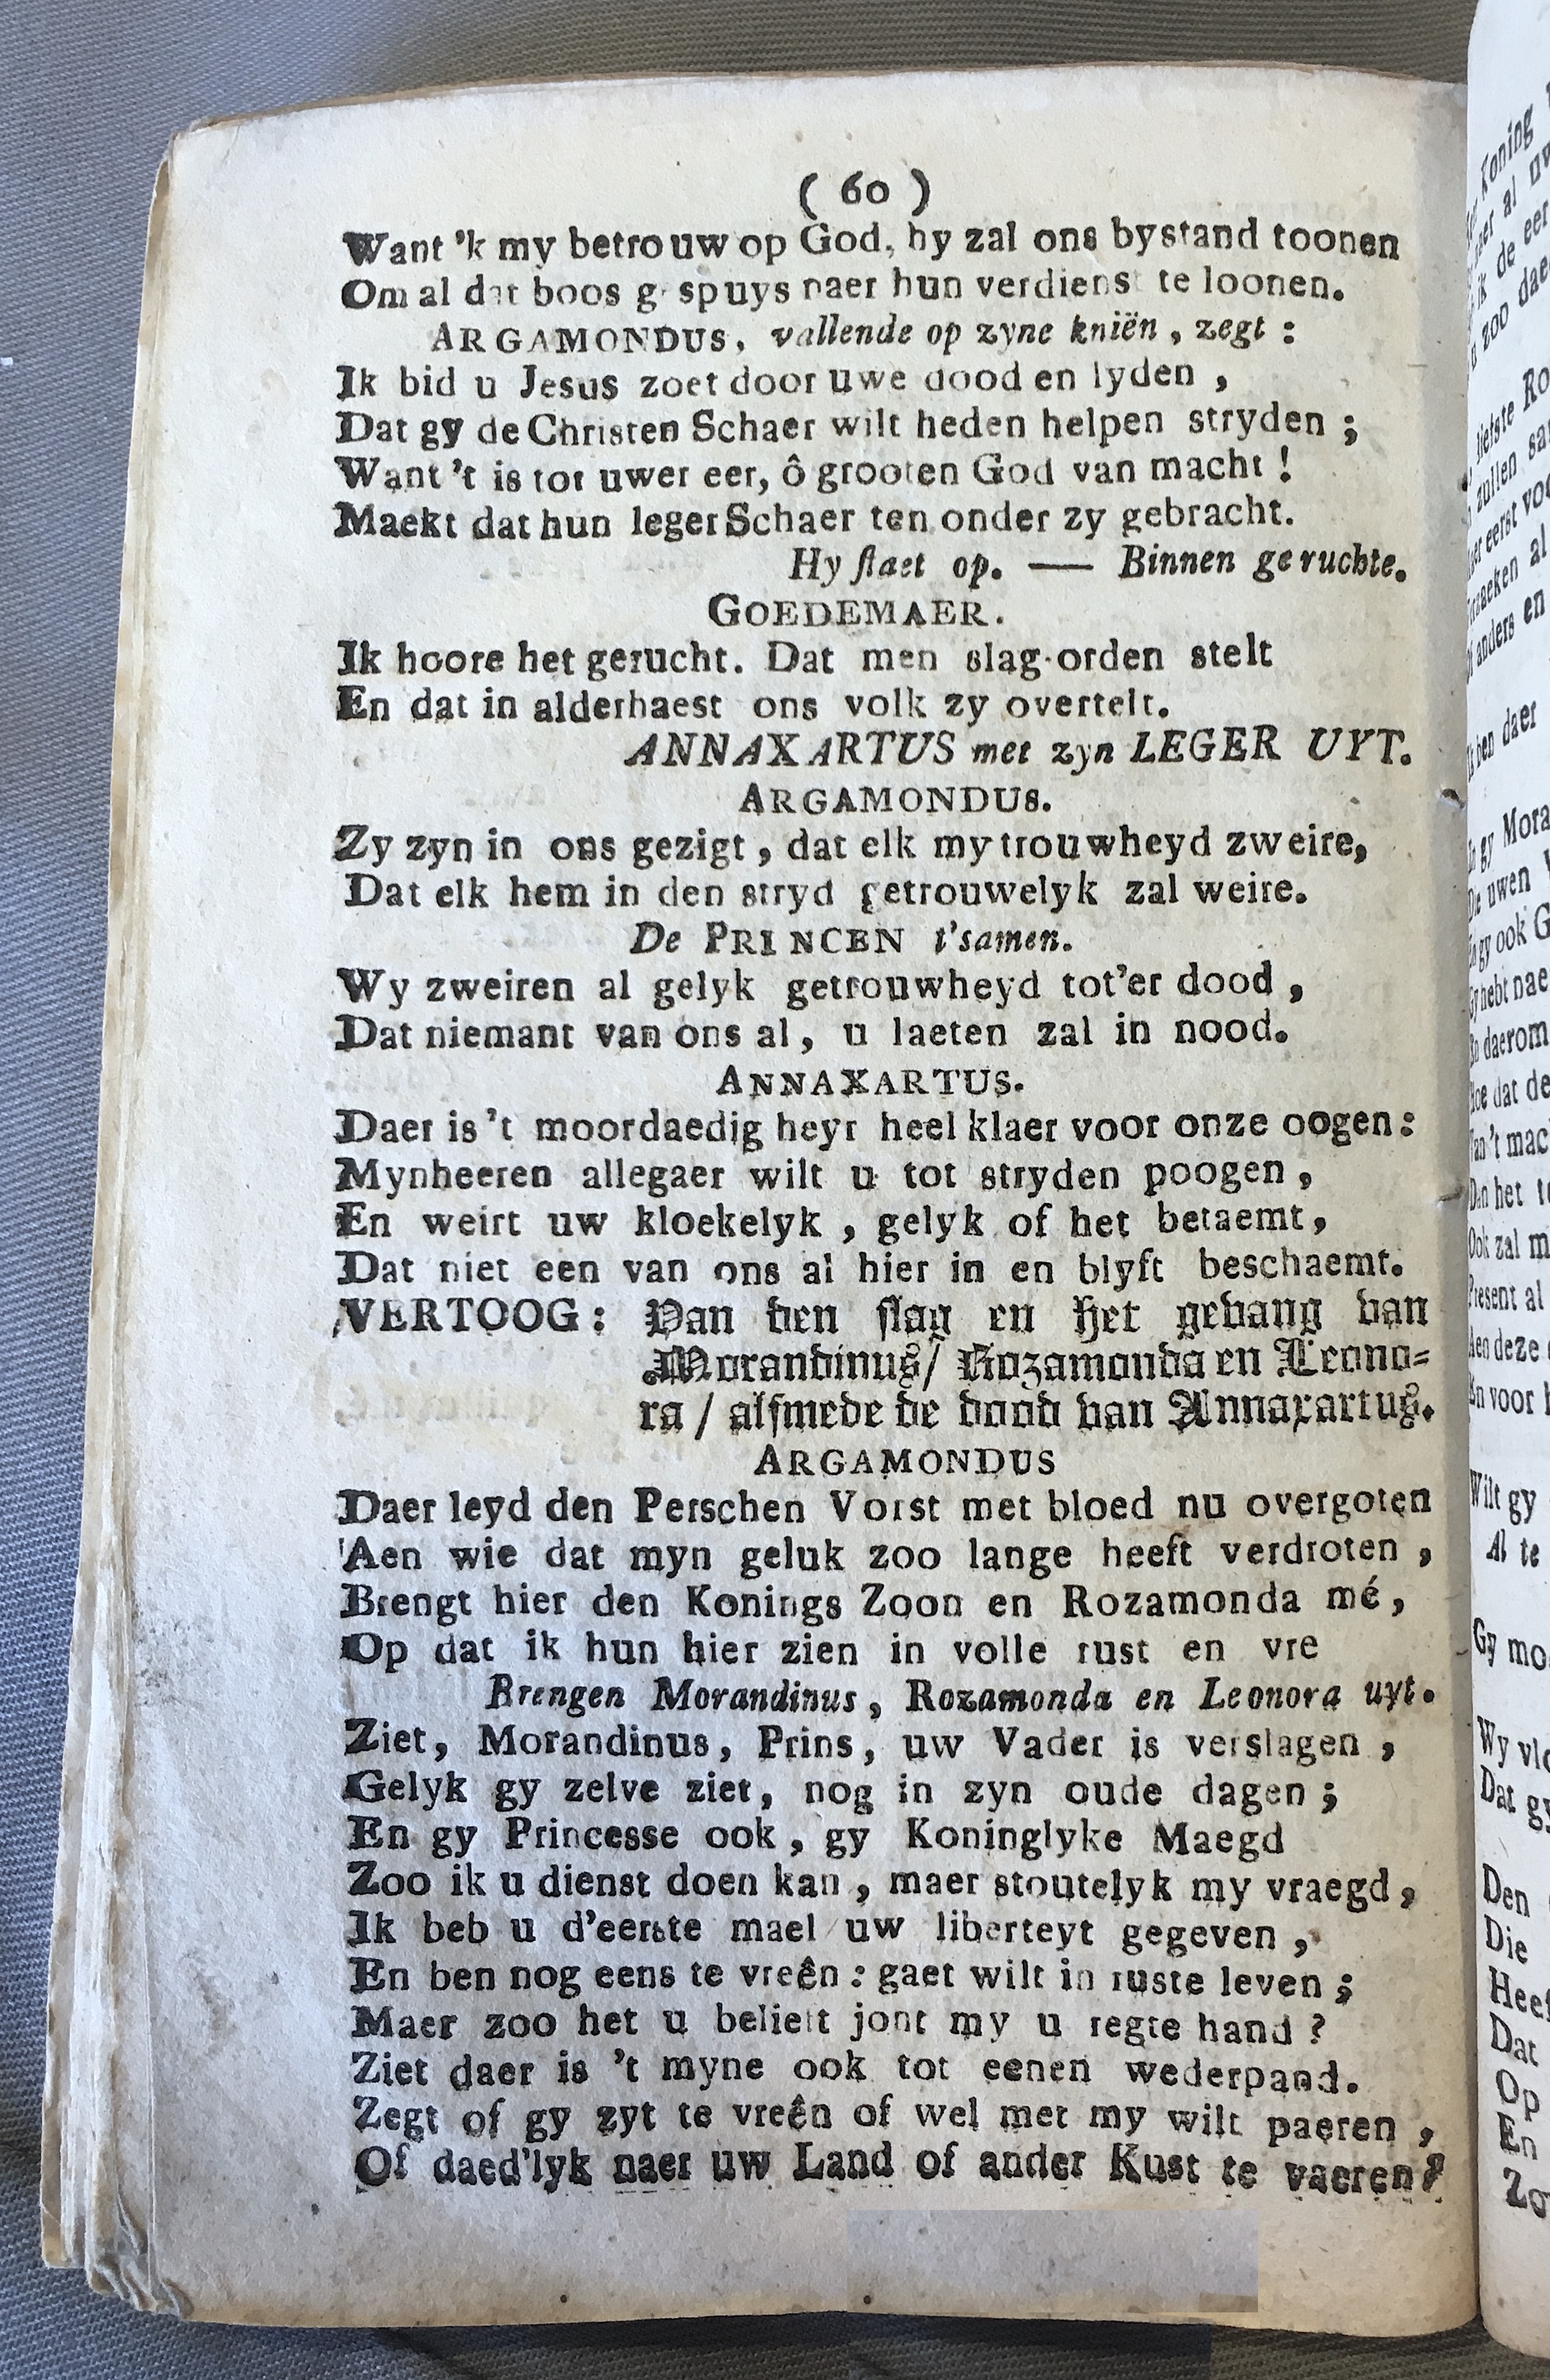 ( 60 )
Want 'k my betrouw op God, hy zal ons bystand toonen
Om al dat boos gespuys naer hun verdienst te loonen.
ARGAMONDUS, vallende op zyne kniën, zegt :
Ik bid u Jesus zoet door uwe dood en lyden ,
Dat gy de Christen Schaer wilt heden helpen stryden ;
Want 't is tot uwer eer, ô grooten God van macht !
Maekt dat hun leger Schaer ten onder zy gebracht.
Hy staet op. — Binnen geruchte.
GOEDEMAER.
Ik hoore het gerucht. Dat men slag-orden stelt
En dat in alderhaest ons volk zy overtelt.
ANNAXARTUS met zyn LEGER UYT.
ARGAMONDUS.
Zy zyn in ons gezigt , dat elk my trouwheyd zweire,
Dat elk hem in den stryd getrouwelyk zal weire.
De PRINCEN t'samen.
Wy zweiren al gelyk getrouwheyd tot'er dood ,
Dat niemant van ons al, u laeten zal in nood.
ANNAXARTUS.
Daer is 't moordaedig heyr heel klaer voor onze oogen:
Mynheeren allegaer wilt u tot stryden poogen ,
En weirt uw kloekelyk , gelyk of het betaemt,
Dat niet een van ons al hier in en blyft beschaemt.
VERTOOG: Van den slag en het gevang van
Morandinus/ Rozamonda en Leono=
ra / alsmede de dood van Annaxartus.
ARGAMONDUS
Daer leyd den Perschen Vorst met bloed nu overgoten
Aen wie dat myn geluk zoo lange heeft verdroten ,
Brengt hier den Konings Zoon en Rozamonda mé ,
Op dat ik hun hier zien in volle rust en vre
Brengen Morandinus, Rozamonda en Leonora uyt.
Ziet, Morandinus, Prins, uw Vader is verslagen ,
Gelyk gy zelve ziet, nog in zyn oude dagen ;
En gy Princesse ook , gy Koninglyke Maegd
Zoo ik u dienst doen kan , maer stoutelyk my vraegd ,
Ik beb u d'eerste mael uw liberteyt gegeven ,
En ben nog eens te vreên : gaet wilt in ruste leven ;
Maer zoo het u belieft jont my u regte hand ?
Ziet daer is 't myne ook tot eenen wederpand.
Zegt of gy zyt te vreên of wel met my wilt paeren ,
Of daed'lyk naer uw Land of ander Kust te vaeren?